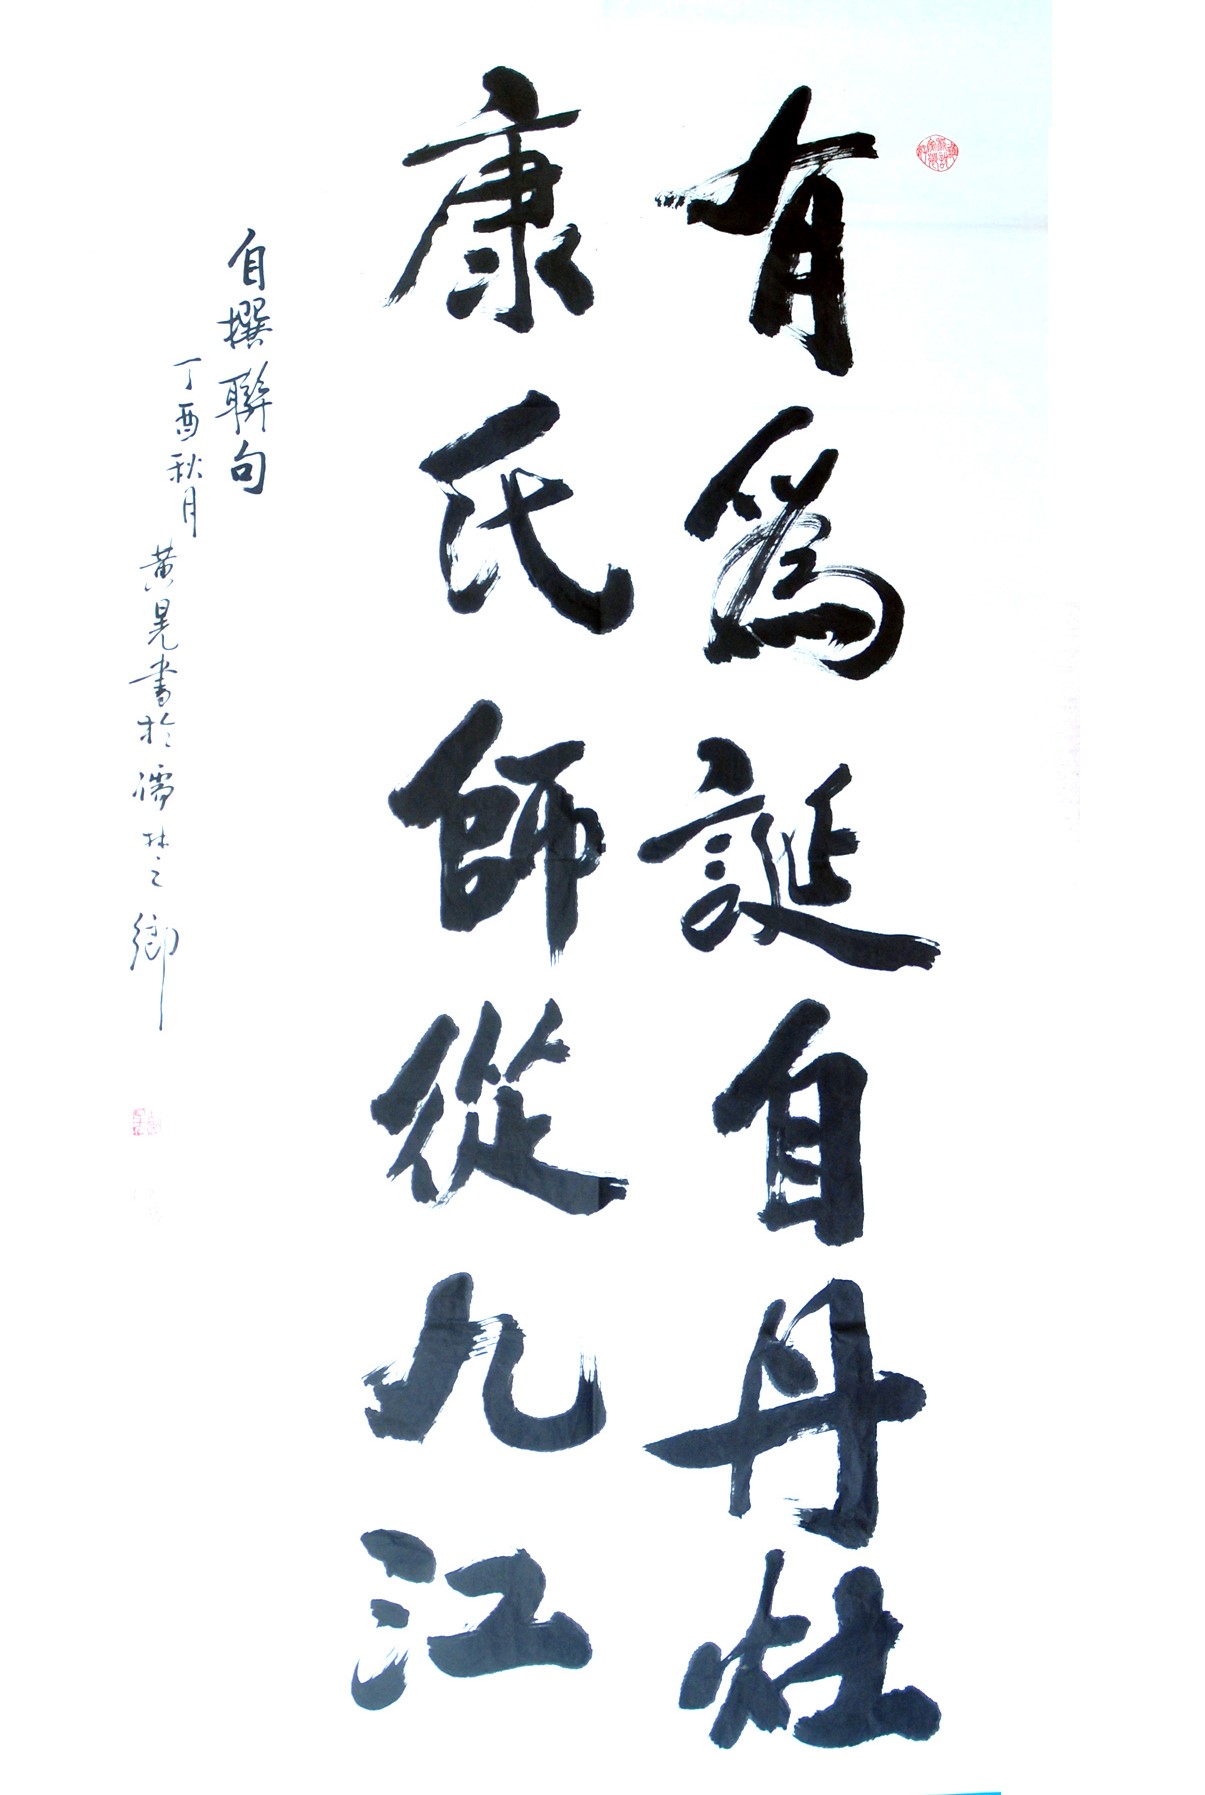 有為誕自丹灶
康氏師從九江
自撰聯句
丁酉秋月
黄晃書於儒林之鄉